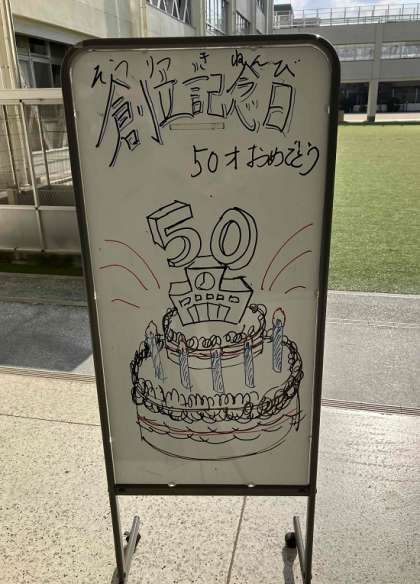 そうりつきねんび
創立記念日
50才おめでとう
50